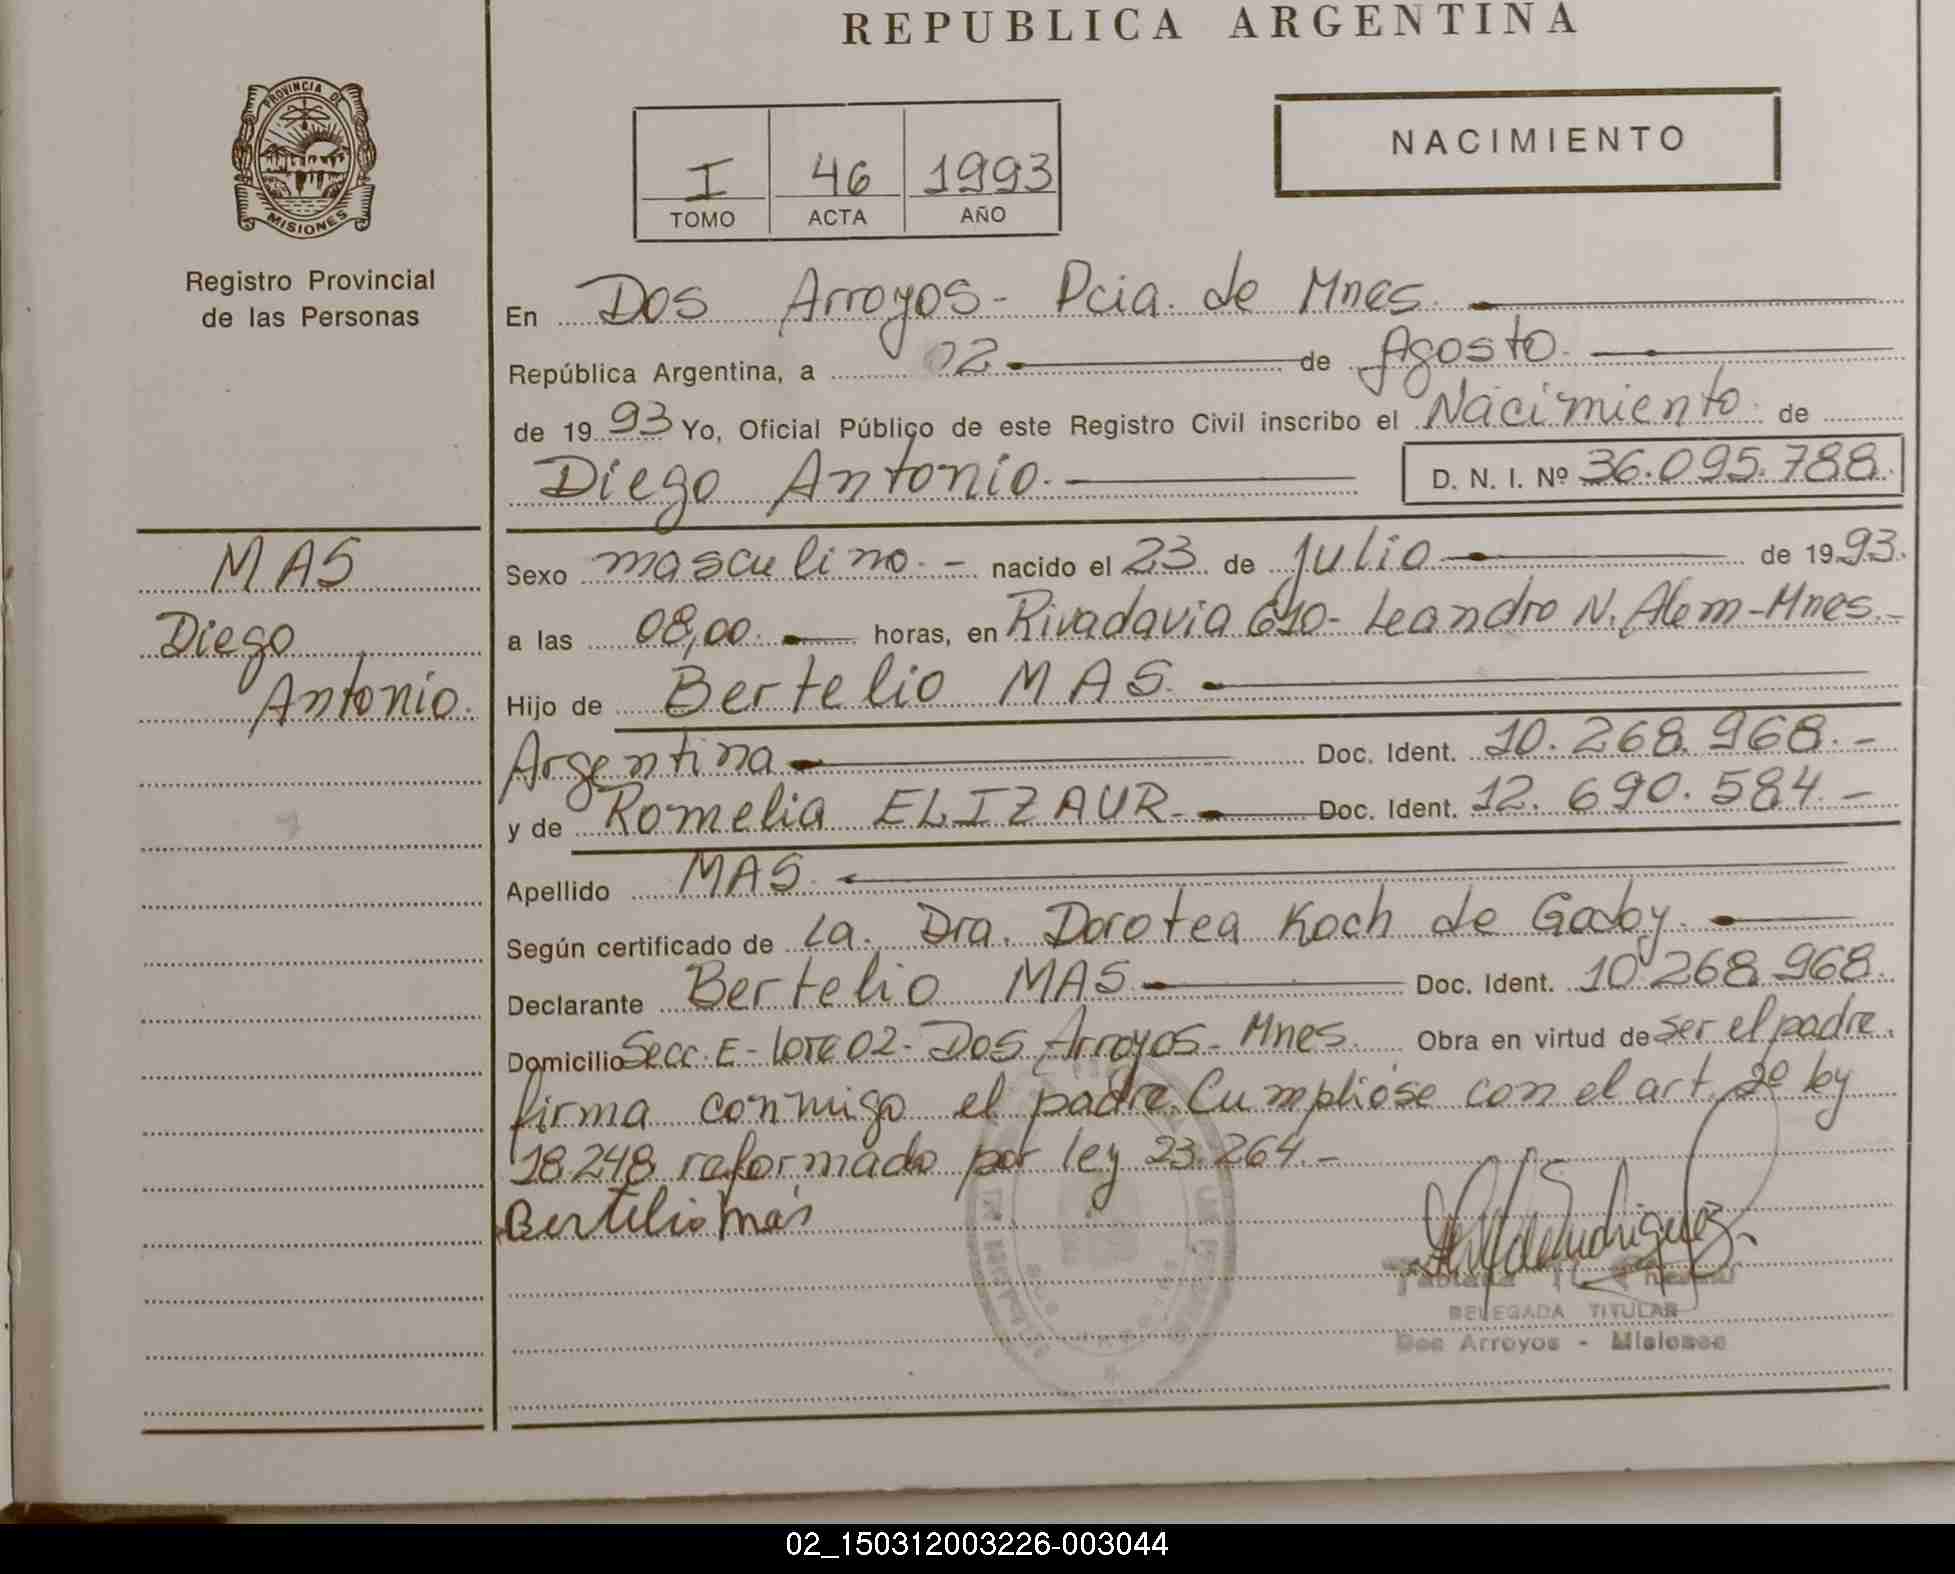 REPUBLICA ARGENTINA
PROVINCIA DE
MISIONES
Registro Provincial
de las Personas
I 46 1993
TOMO ACTA AÑO
NACIMIENTO
En Dos Arroyos- Pcia. de Mnes.
República Argentina, a 02 de Agosto.
de 1993 Yo, Oficial Público de este Registro Civil inscribo el Nacimiento de
Diego Antonio. D. N. I. Nº 36.095.788.
MAS
Diego
Antonio.
Sexo masculino.- nacido el 23 de Julio de 1993.
a las 08,00. horas, en Rivadavia 610- Leandro N. Alem-Mnes.-
Hijo de Bertelio MAS.
Argentina Doc. Ident. 10.268.968.-
y de Romelia ELIZAUR. Doc. Ident. 12.690.584.-
Apellido MAS.
Según certificado de La. Dra. Dorotea Koch de Godoy.
Declarante Bertelio MAS Doc. Ident. 10.268.968.
Domicilio Secc. E- Lote 02- Dos Arroyos- Mnes. Obra en virtud de ser el padre.
firma conmigo el padre. Cumplióse con el art. 2º ley
18.248 reformado por ley 23.264.-
Bertelio Mas
DELEGADA TITULAR
Dos Arroyos - Misiones
02_150312003226-003044